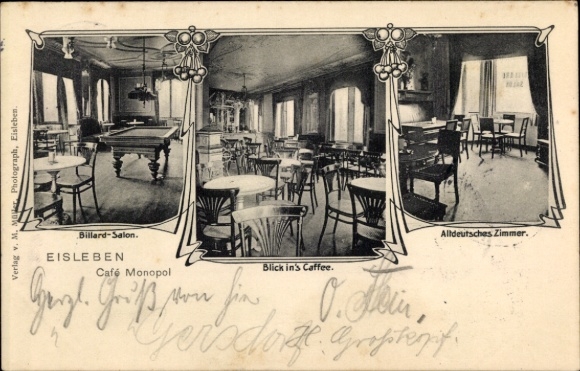 Verlag v. M. Müller, Photograph, Eisleben.
Billard-Salon.
Blick in's Caffee.
Altdeutsches Zimmer.
EISLEBEN
Café Monopol
Herzl. Gruß von hier
O. Stein,
Gersdorf
Großkopf.